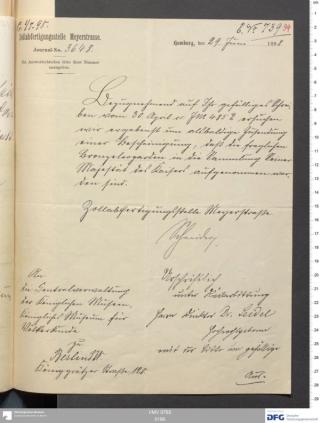 E. № 739 94
Zollabfertigungsstelle Meyerstrasse.
Hamburg, den 29 Juni 1898
Journal-No. 3648.
In Antwortschreiben bitte diese Nummer
anzugeben.
Bezugnehmend auf Ihr gefälliges Schrei-
ben vom 30 April ersuchen
wir ergebenst um alsbaldige Zusendung
einer Bescheinigung, daß die fraglichen
Bronzelegarden in die Sammlung Seiner
Majestät des Kaisers aufgenommen wor-
den sind.
Zollabfertigungsstelle Meyerstraße
An
die Generalverwaltung
der Königlichen Museen,
Königliches Museum für
Völkerkunde
Berlin SW
Königgrätzer Straße 120.
Urschriftlich
unter Rückerbittung
Herrn Direktor Dr. Seidel
mit der Bitte um gefällige
DFG